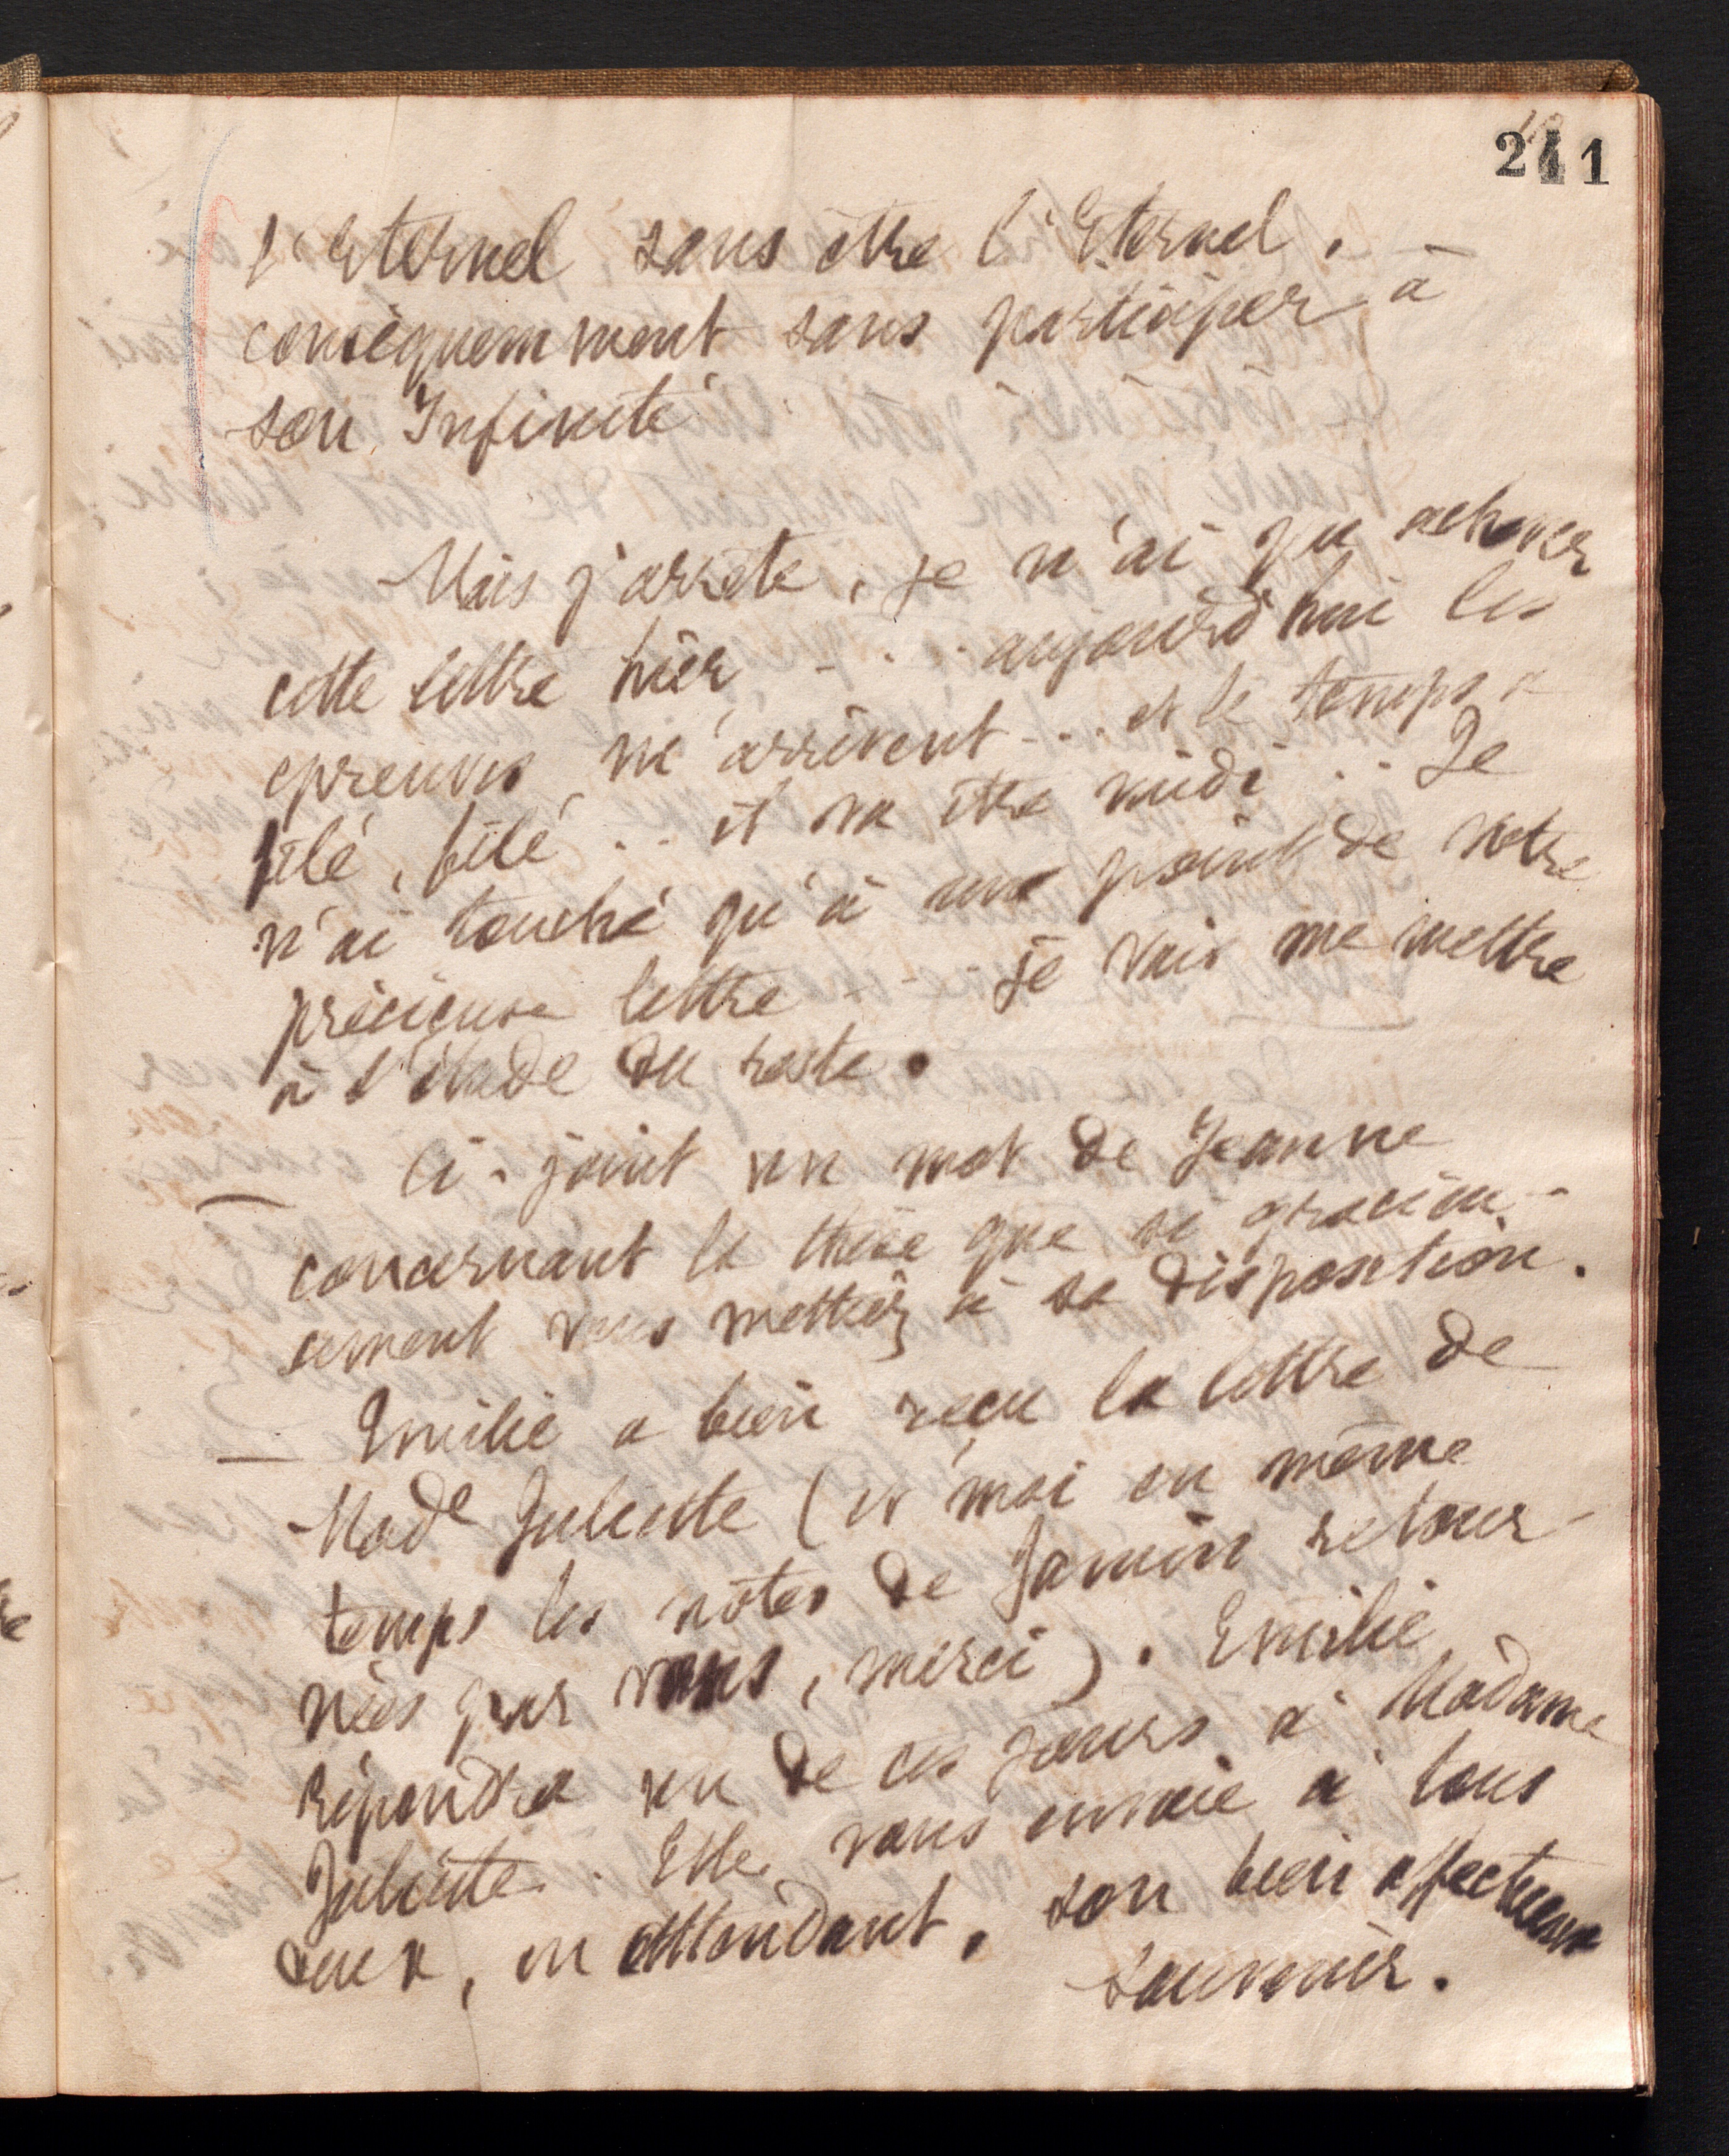 241
l'Eternel sans être l'Eternel,
conséquemment sans participer à
son Infinité
Mais j'arrête, je n'ai pu achever
cette lettre hier, - . . aujourd'hui les
epreuves m'arrivent - . . et le temps a
filé, filé . . il va être midi . . Je
n'ai touché qu'à un point de votre
précieuse lettre - - . je vais me mettre
à l'étude du reste.
Ci-joint un mot de Jeanne
concernant la thèse que si gracieu-
sement vous mettiez à sa disposition.
— Emilie a bien reçu la lettre de
Made Juliette (et moi en même
temps les notes de Jamin retour-
nées par vous, merci). Emilie
répondra un de ces jours à Madame
Juliette. Elle vous envoie à tous
deux, en attendant, son bien affectueux
souvenir.